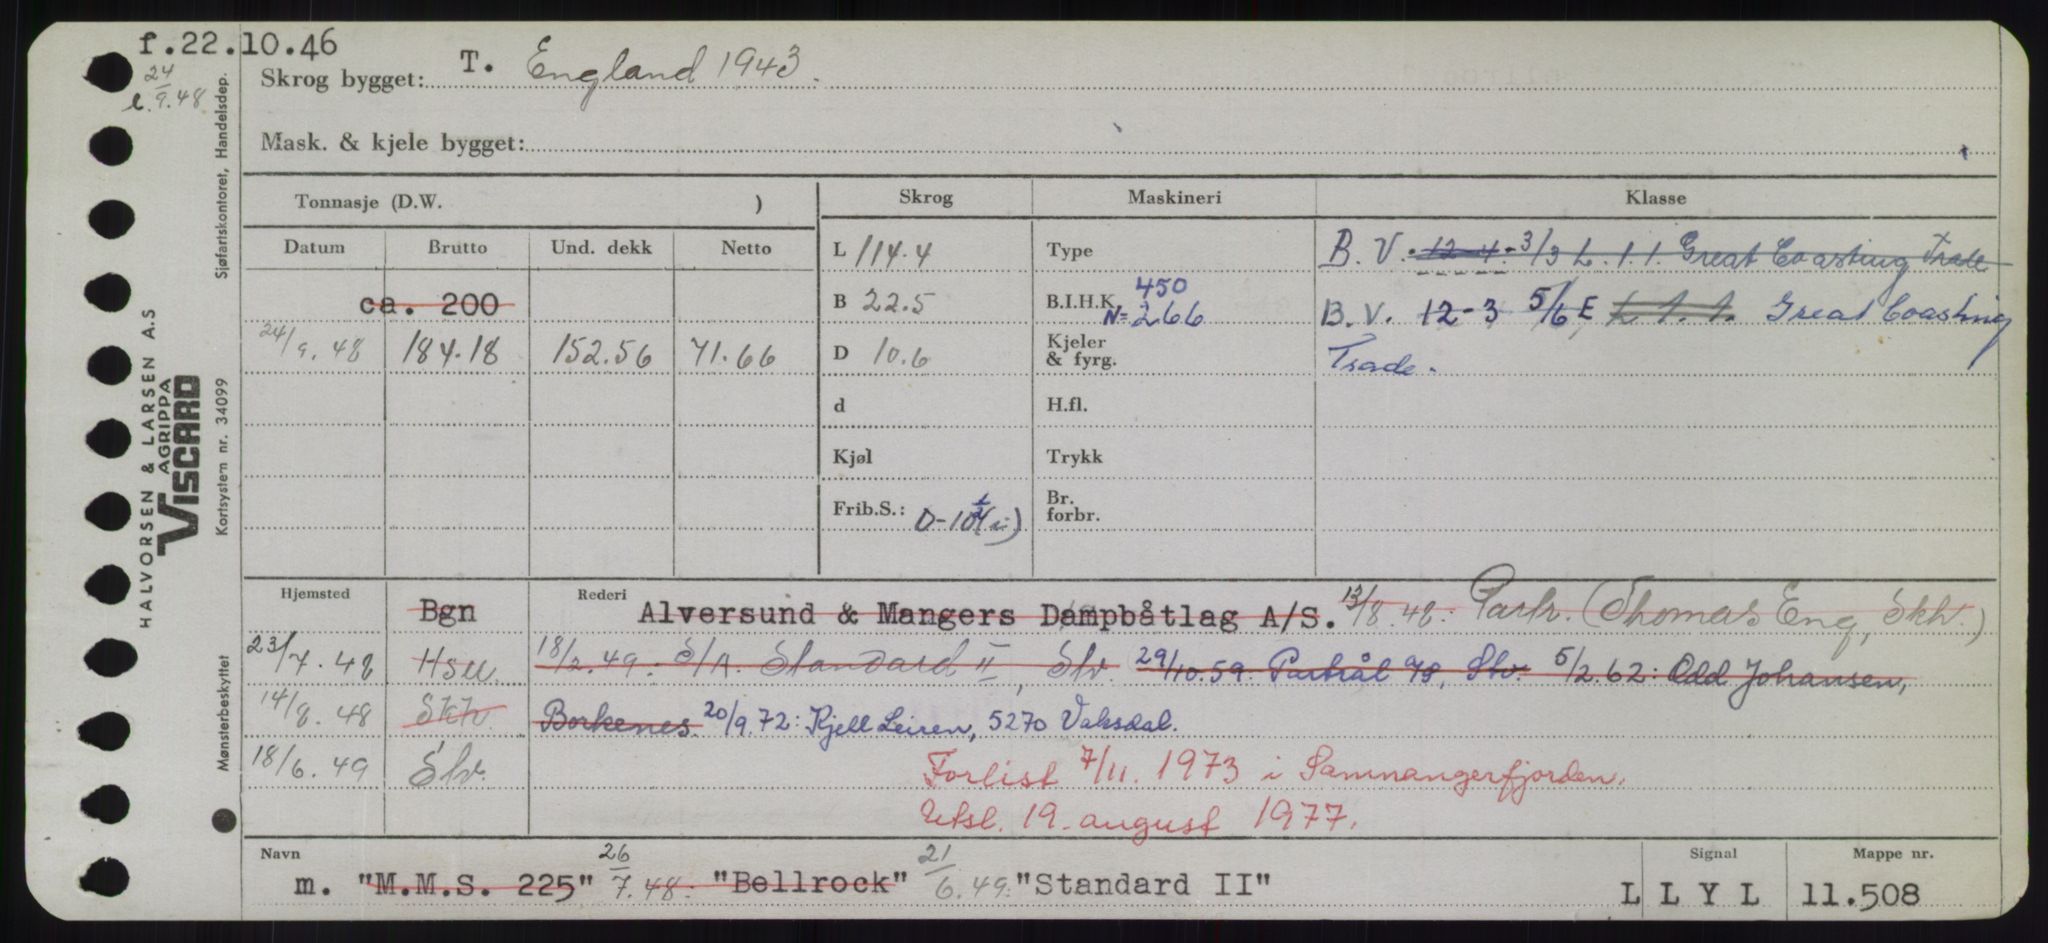 f.22.10.46
24/9.48
Skrog bygget: T. England 1943.
Mask. & kjele bygget:
Tonnasje (D.W. ) Skrog Maskineri Klasse
Datum Brutto Und. dekk Netto L 114.4 Type B. V. 12-4-3/3 L.1.1. Great Coasting Trade
ca. 200 B 22.5 B.I.H.K. 450 N= 266 B.V. 12-3 5/6 E L 1.1. Great Coasting
24/9.48 184.18 152.56 71.66 D 10.6 Kjeler & fyrg. Trade.
d H.fl.
Kjøl Trykk
Frib.S.: Br. forbr.
Hjemsted Bgn Rederi Alversund & Mangers Dampbåtlag A/S. 13/8.48: Partr. (Thomas Eng, Skh.)
23/7.48 18/2.49: S/A. Standard II, Slv. 29/10.59 Slv. 5/2.62: Odd Johansen,
14/8.48 Borkenes. 20/9.72: Kjell Leiren, 5270 Vaksdal.
18/6.49 Slv. Forlist 7/11. 1973 i Samnangerfjorden.
Utsl. 19. august 1977.
Navn Signal Mappe nr.
m. "M.M.S. 225" 26/7.48: "Bellrock" 21/6.49: "Standard II" L L Y L 11.508
HALVORSEN & LARSEN A.S
AGRIPPA
VISCARD
Sjøfartskontoret, Handelsdep.
Kortsystem nr. 34099
Mønsterbeskyttet